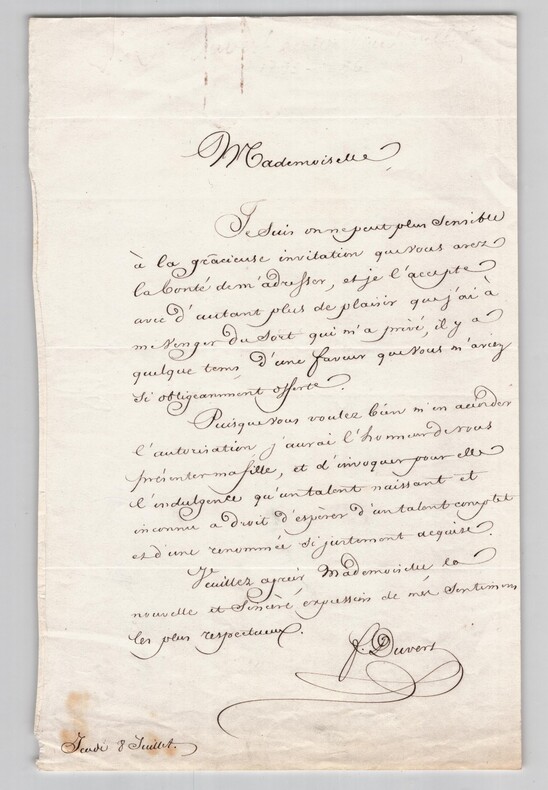 Mademoiselle
Je suis on ne peut plus sensible
à la grâcieuse invitation que vous avez
la bonté de m'adresser, et je l'accepte
avec d'autant plus de plaisir que j'ai à
me venger du sort qui m'a privé, il y a
quelque tems, d'une faveur que vous m'aviez
si obligeamment offerte.
Puisque vous voulez bien m'en accorder
l'autorisation j'aurai l'honneur de vous
présenter ma fille, et d'invoquer pour elle
l'indulgence qu'un talent naissant et
inconnu a droit d'espérer d'un talent complet
et d'une renommée si justement acquise.
Veuillez agréer Mademoiselle la
nouvelle et sincère expression de mes sentimens
les plus respectueux.
f. Duvert
Jeudi 8 Juillet.